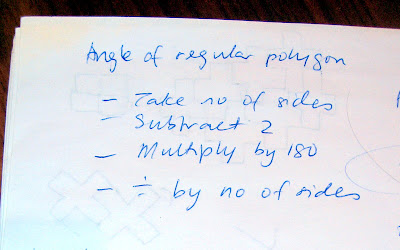 Angle of regular polygon
- Take no of sides
- Subtract 2
- Multiply by 180
- ÷ by no of sides